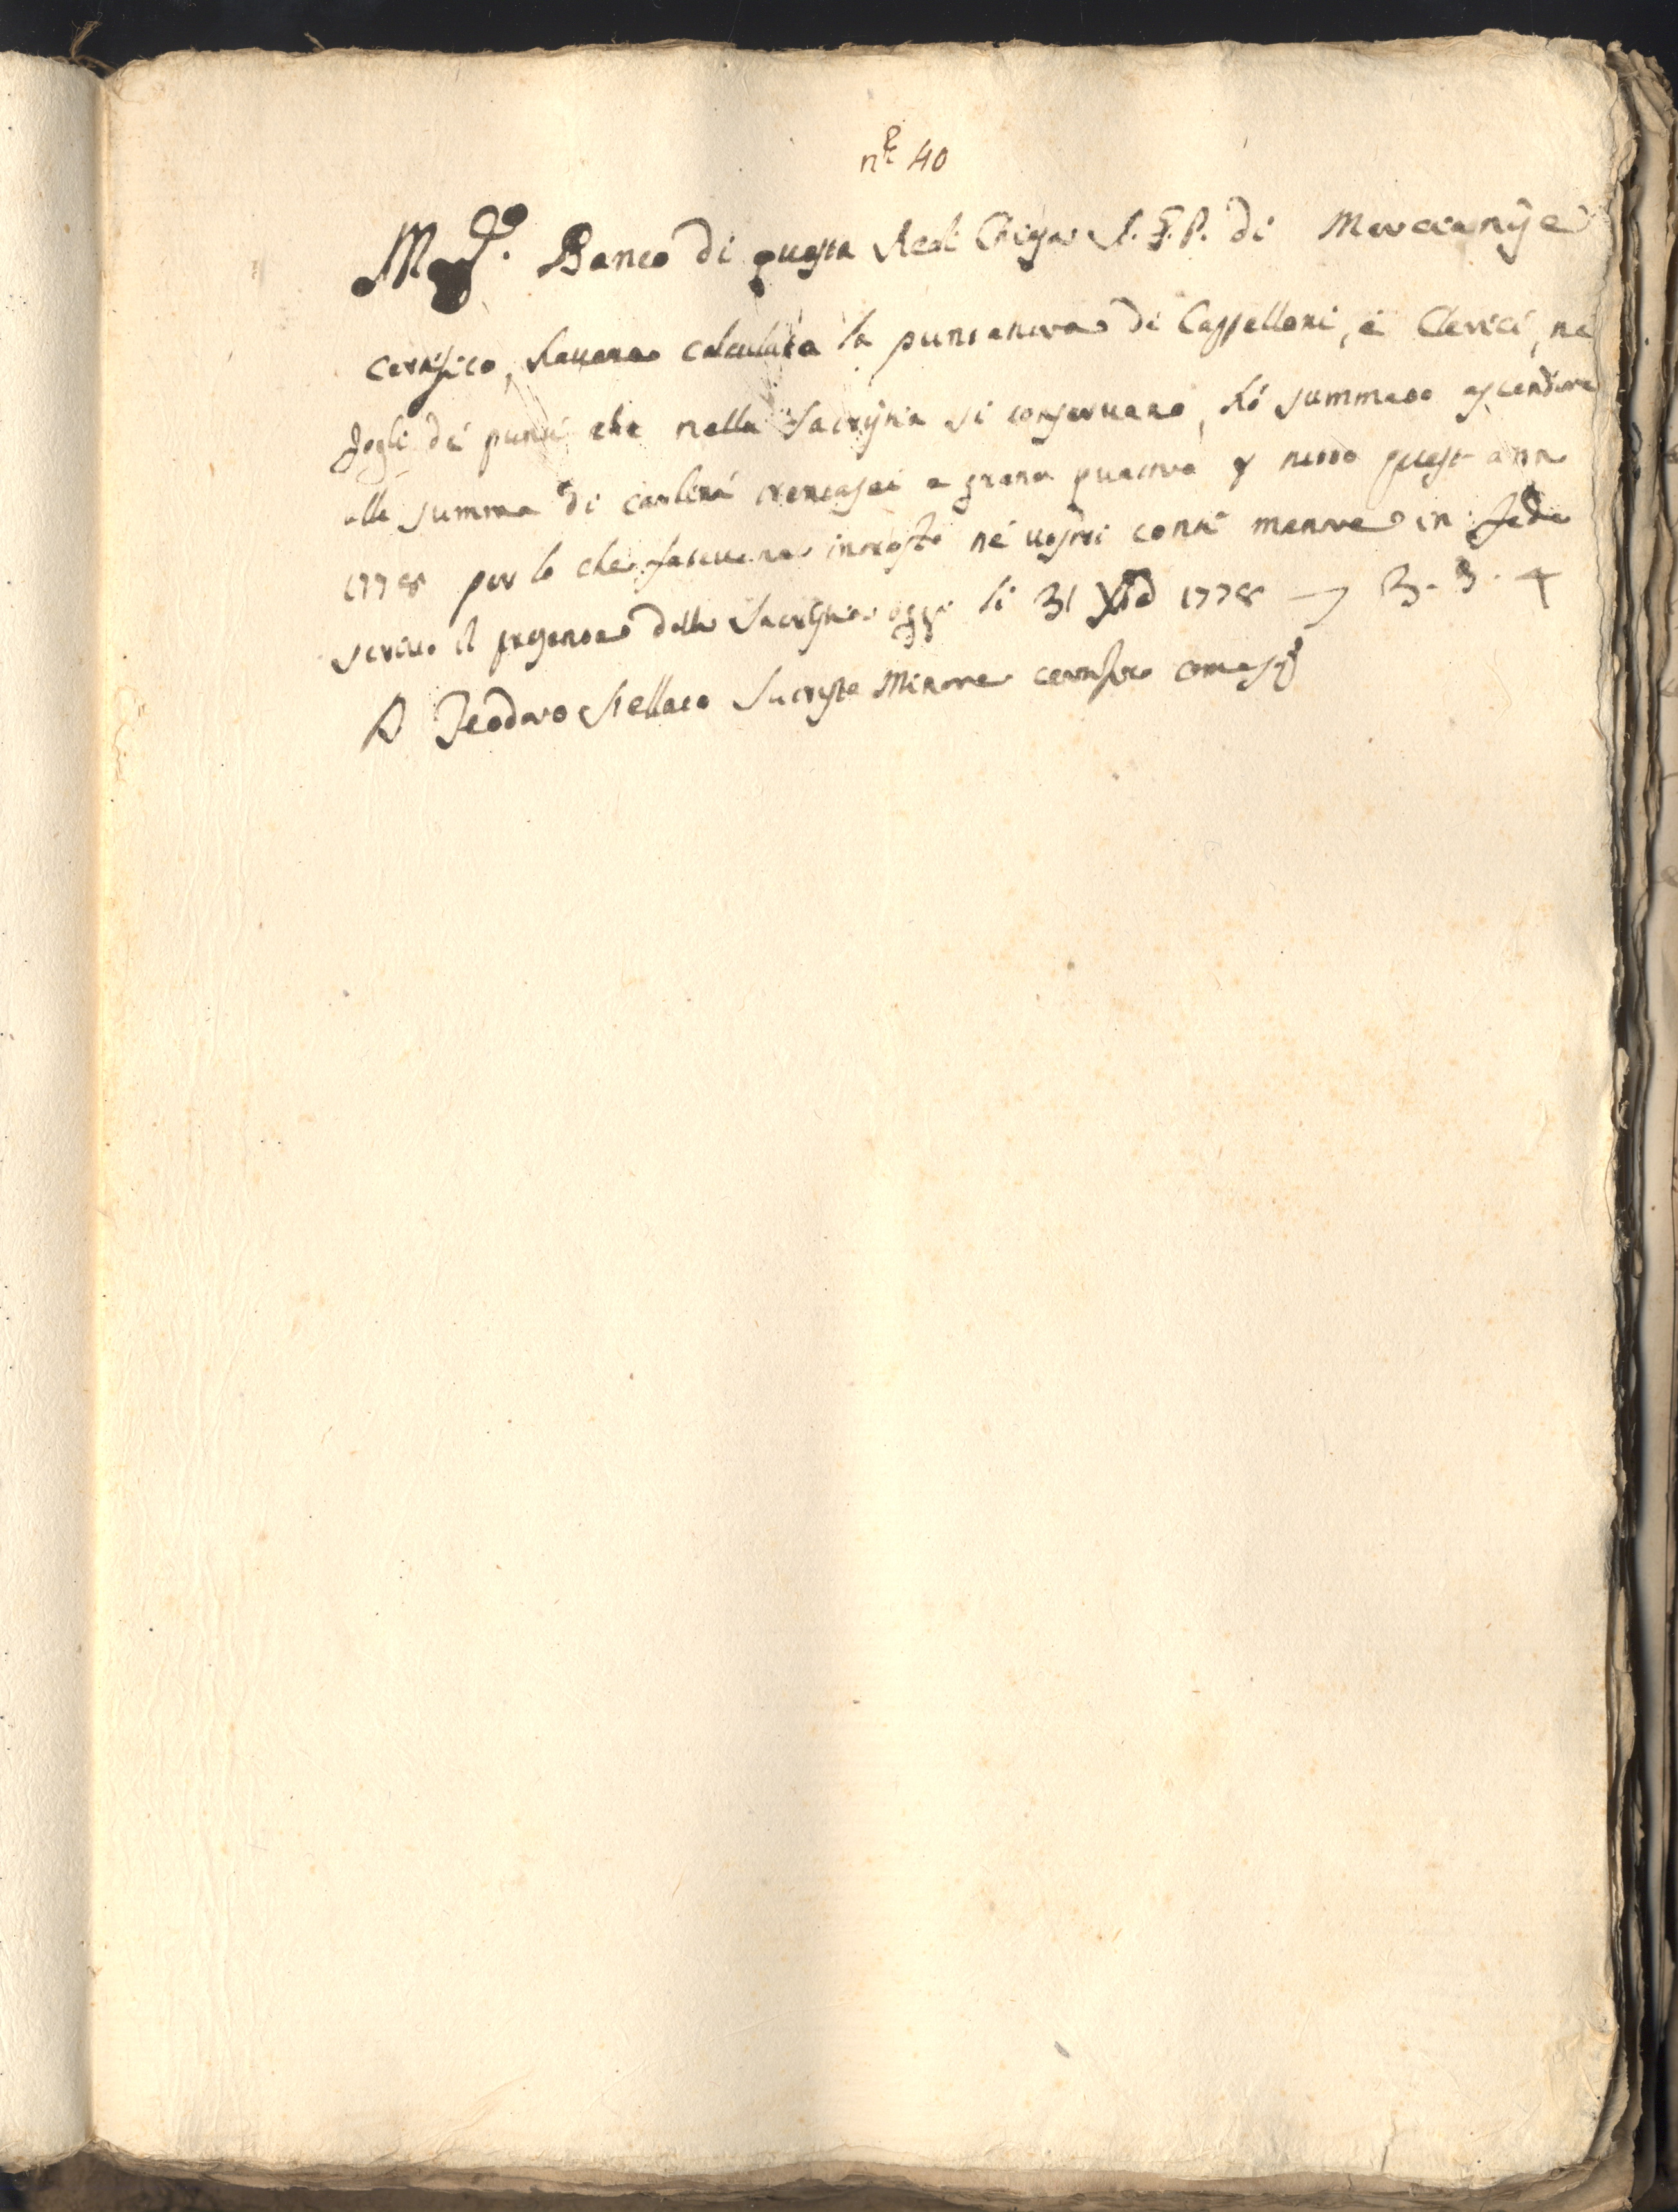 n.° 40
Mag.co Banco di questa Real Chiesa A.G.P. di Marcianise
certifico, havere calculata la puntatura de Cappellani, e Clerici, ne
fogli de punti che nella Sacrestia si conservano, hò summato ascendere
alla summa di carlini trentasei e grana quattro p tutto quest' ann
1778 per lo che farete introito ne vostri conti mentre in fede
scrivo il presente dalla Sacrestia oggi li 31 Xbre 1778 3-3-4
D Teodoro Stellato Sacrista Minore certifico come sop.a